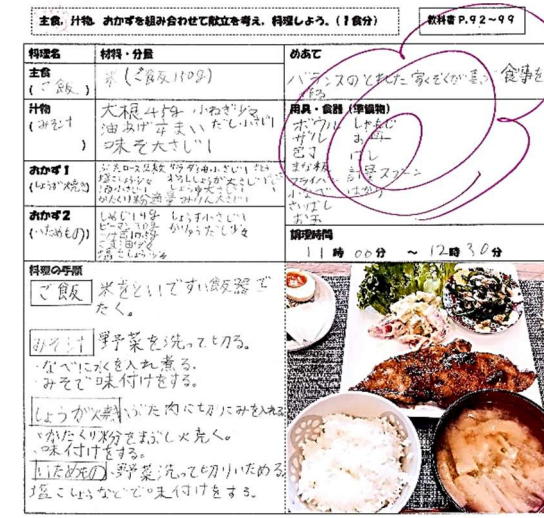 主食、汁物、おかずを組み合わせて献立を考え、料理しよう。(1食分)
教科書P.92~99
料理名
材料・分量
めあて
主食
(ご飯)
米(ご飯150g)
バランスのとれた家ぞくが喜ぶ食事を
作る
汁物
(みそ汁)
大根45g 小ねぎ少々
油あげ
だし小さじ1
味そ大さじ1
用具・食器(準備物)
ボウル しゃもじ
ザル お
包丁
まな板 計量スプーン
フライパン はかり
小なべ
さいばし
おかず1
(しょうが焼き)
ぶたロース
塩こしょう少々
しょうゆ大さじ
かたくり粉適量 みりん大さじ
おかず2
(いためもの)
しめじ
ピーマン
しょうゆ小さじ1
塩こしょう少々
調理時間
11時00分 ~ 12時30分
料理の手順
ご飯 米をといですい飯器で
たく。
みそ汁 野菜を洗って切る。
・なべに水を入れ煮る。
・みそで味付けをする。
しょうが焼 ぶた肉に切にみを入れる
・かたくり粉をまぶし火焼く。
・味付けをする。
いためもの ・野菜洗って切りいためる
塩こしょうなどで味付けをする。